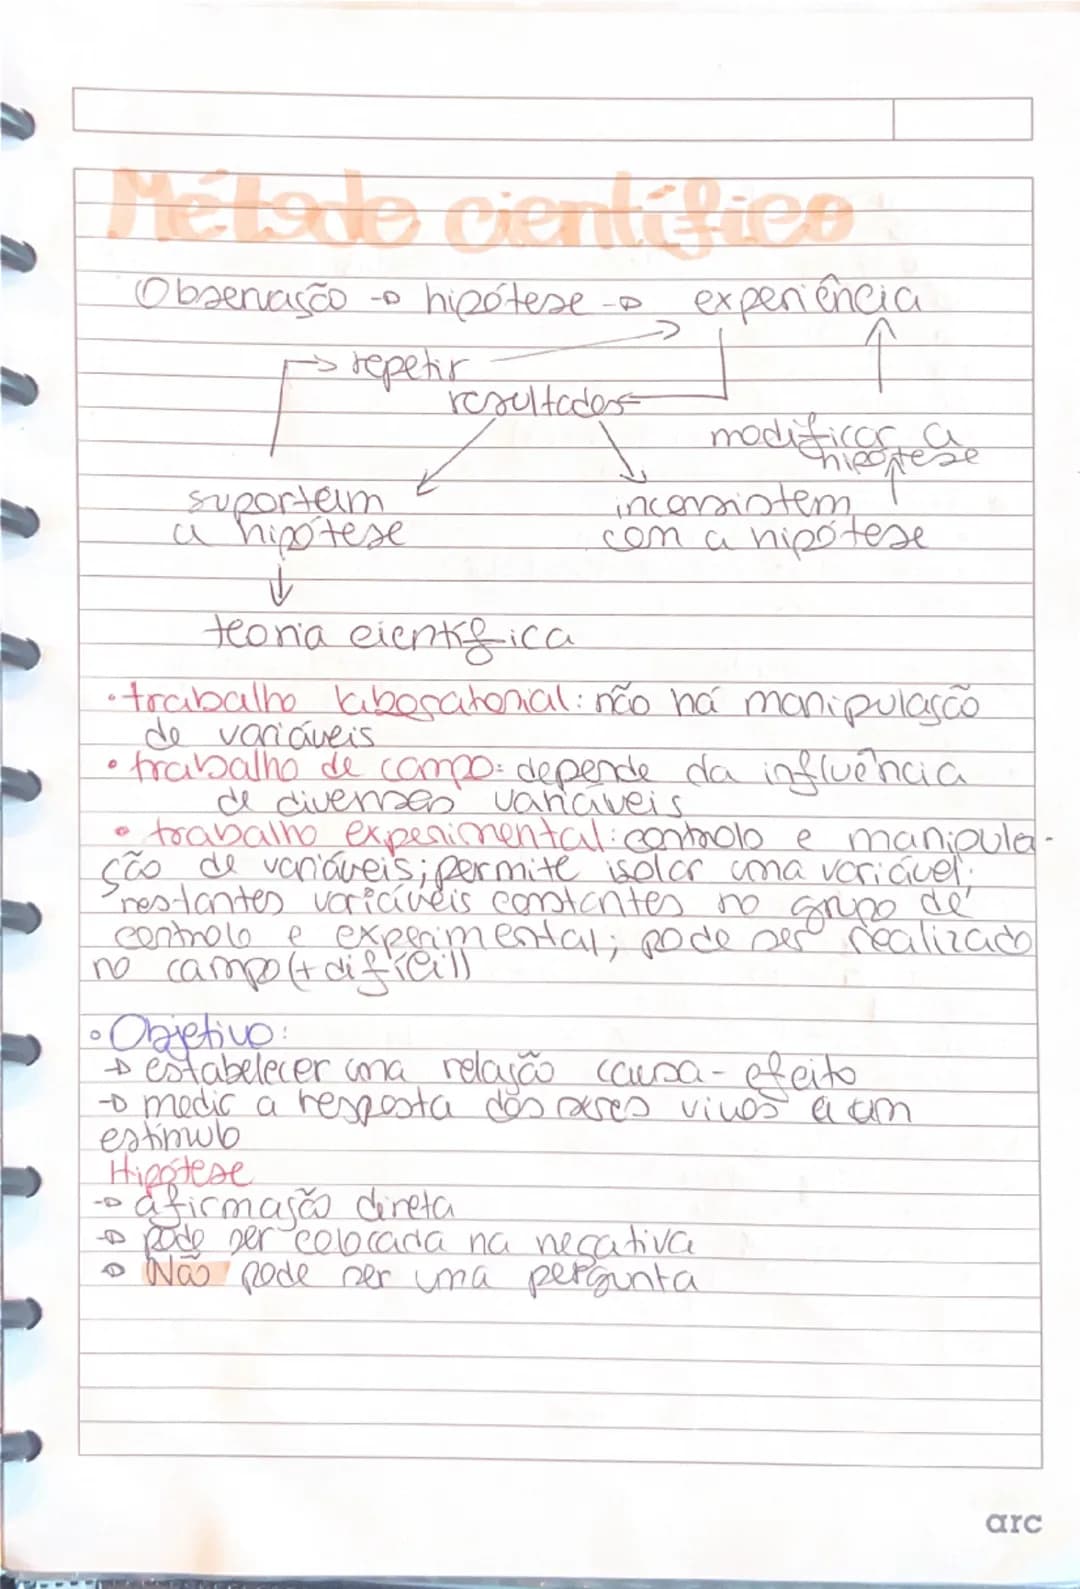 Método científico
Observação → hipótese → experiência
repetir
resultados
modificar a
hipótese
suportam
a hipótese
inconsistem
com a hipótese
teoria científica
• trabalho laboratorial: não há manipulação
de variáveis
• trabalho de campo: depende da influência
de diversas variáveis
• trabalho experimental: controlo e manipula-
ção de variáveis; permite isolar uma variável;
restantes variáveis constantes no grupo de
controlo e experimental; pode ser realizado
no campo (+ difícil)
• Objetivo:
→ estabelecer uma relação causa-efeito
→ medir a resposta dos seres vivos a um
estímulo
Hipótese
→ afirmação direta
→ pode ser colocada na negativa
→ Não pode ser uma pergunta
arc